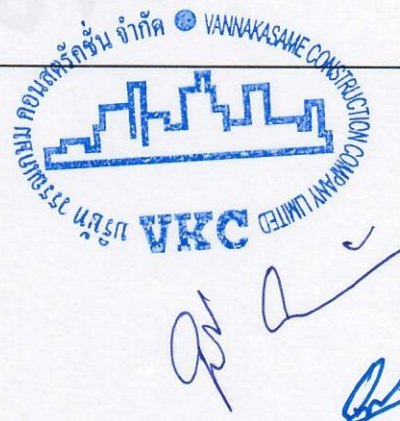 บริษัท วรรณเกษม คอนสตรัคชั่น จำกัด
VANNAKASAME CONSTRUCTION COMPANY LIMITED
VKC